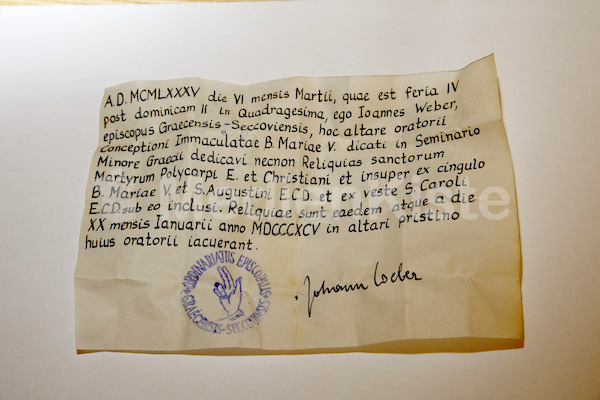 A.D. MCMLXXXV die VI mensis Martii, quae est feria IV
post dominicam II in Quadragesima, ego Ioannes Weber,
episcopus Graecensis-Seccoviensis, hoc altare oratorii
conceptioni Immaculatae B. Mariae V. dicati in Seminario
Minore Graecii dedicavi necnon Reliquias sanctorum
Martyrum Polycarpi E. et Christiani et insuper ex cingulo
B. Mariae V. et S. Augustini E.C.D. et ex veste S. Caroli
E.C.D. sub eo inclusi. Reliquiae sunt eaedem atque a die
XX mensis Ianuarii anno MDCCCXCV in altari pristino
huius oratorii iacuerant.
ORDINARIATUS EPISCOPALIS
GRAECENSIS-SECCOVIENSIS
Johann Weber